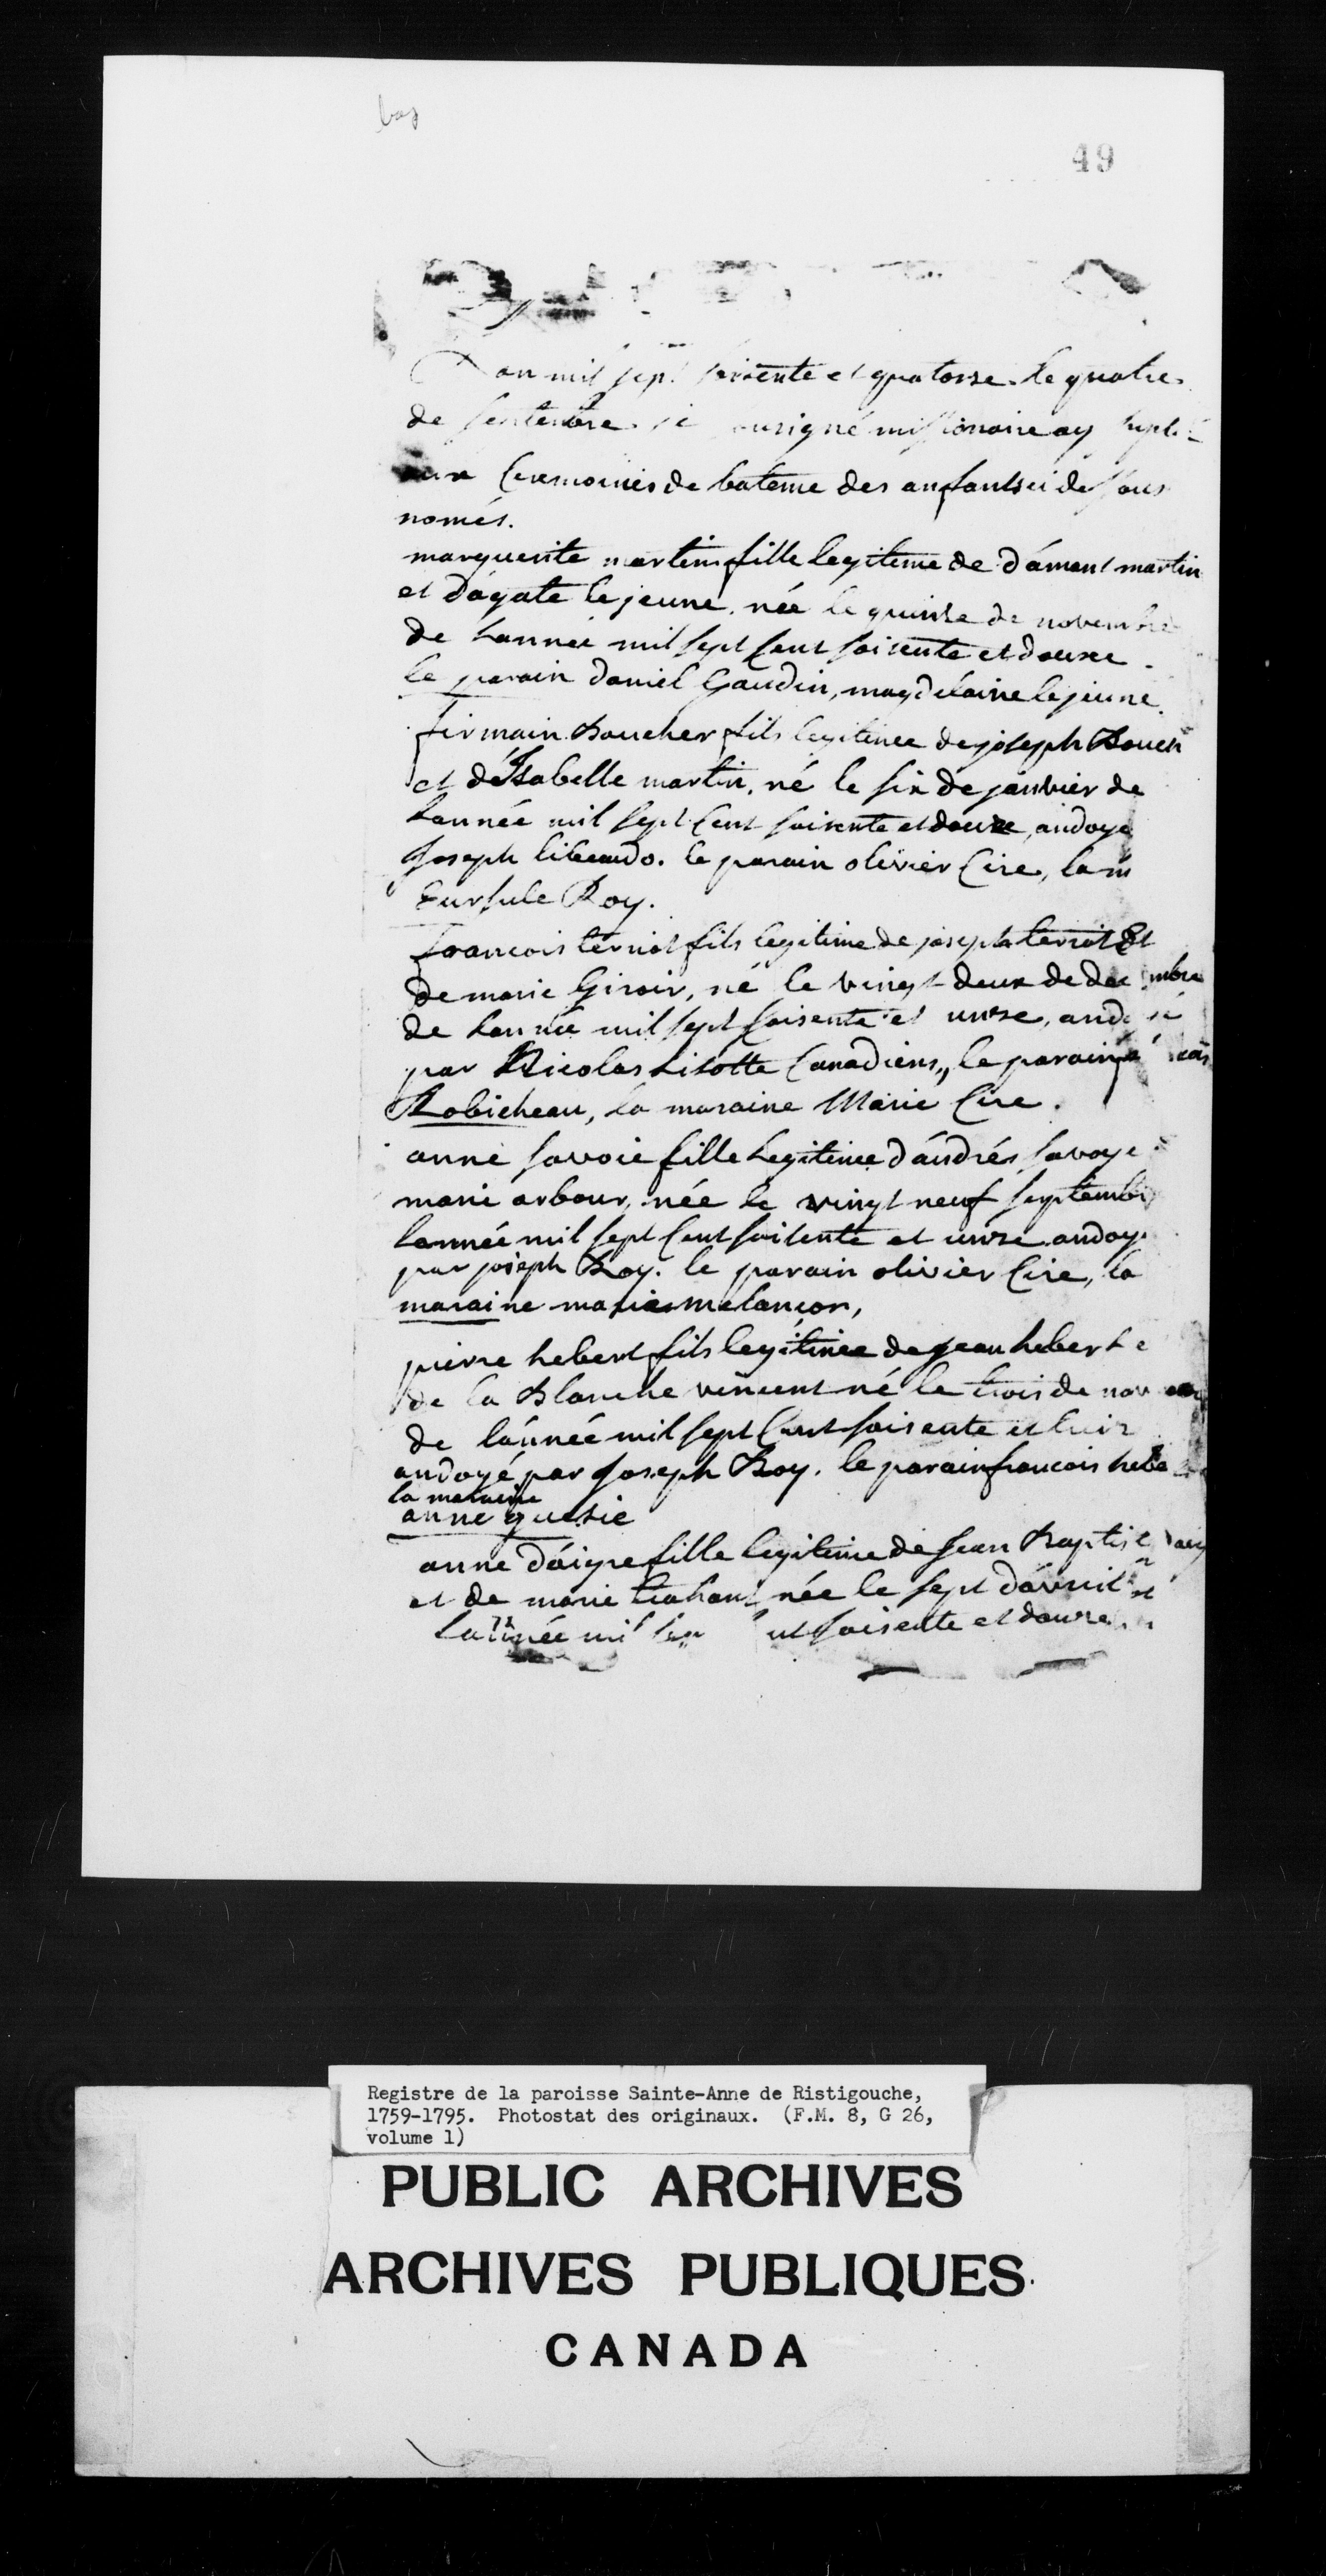 bas
49
an mil sept soixente et quatorze le quatre
de sentembre je ousigné missionaire ay suplée
aux Ceremonies de bateme des anfants ci desous
només.
marguerite martin fille legiteme de dámant martin
et dágate le jeune, née le quinze de novembre
de Lannée mil sept Cent soisente et douze.
le parain daniel Gaudin, magdelaine lejeune.
firmain Boucher fils legitime de joseph Bouch
et déIsabelle martin, né le six de janvier de
Lannée mil sept Cent soisente et douze, andoyé
Joseph libaudo. le parain olivier Cire, la m
Eursule Roy.
francois terriot fils legitime de joseph terriot Et
de marie Giroir, né le vingt deux de dec mbre
de Lannée mil sept soisente et unze, ando ié
par Nicolas Lisotte Canadiens, le parain
Robicheau, la maraine Marie Cire.
anne savoie fille Legitime dándrés savoye
marie arbour, née le vingt neuf septembr
Lannée mil sept Cent soisente et unze andoy
par joseph Roy. le parain olivier Cire, la
maraine marie melançon,
pierre hebert fils legitime de Jean hebert e
de la Blanche vincent né le trois de nov
de lánnée mil sept Cent soisente et
andoyé par Joseph Roy. le parain francois hebe
la maraine
anne quesie
anne dáigre fille legitime de Jean Baptist daig
et de marie trahant née le sept dávril
Lannée mil sep nt soisente et douze.
Registre de la paroisse Sainte-Anne de Ristigouche,
1759-1795. Photostat des originaux. (F.M. 8, G 26,
volume 1)
PUBLIC ARCHIVES
ARCHIVES PUBLIQUES
CANADA